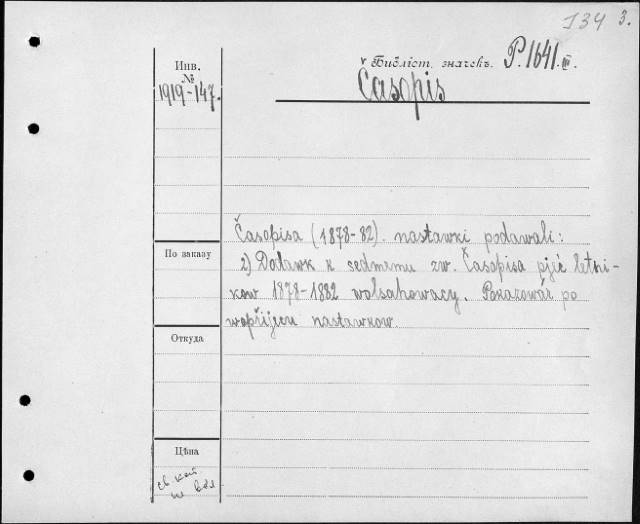 134 3.
Инв.
№
1919-147.
Библіот. значекъ. P.1641.III.
Časopis
Časopisa (1878-82). nastawki podawali:
2) Dodawk k sedmemu zw. Časopisa pjić letni-
kow 1878-1882 wobsahowacy. Pokazowár po
wopřijeću nastawkow.
По заказу
Откуда
Цѣна